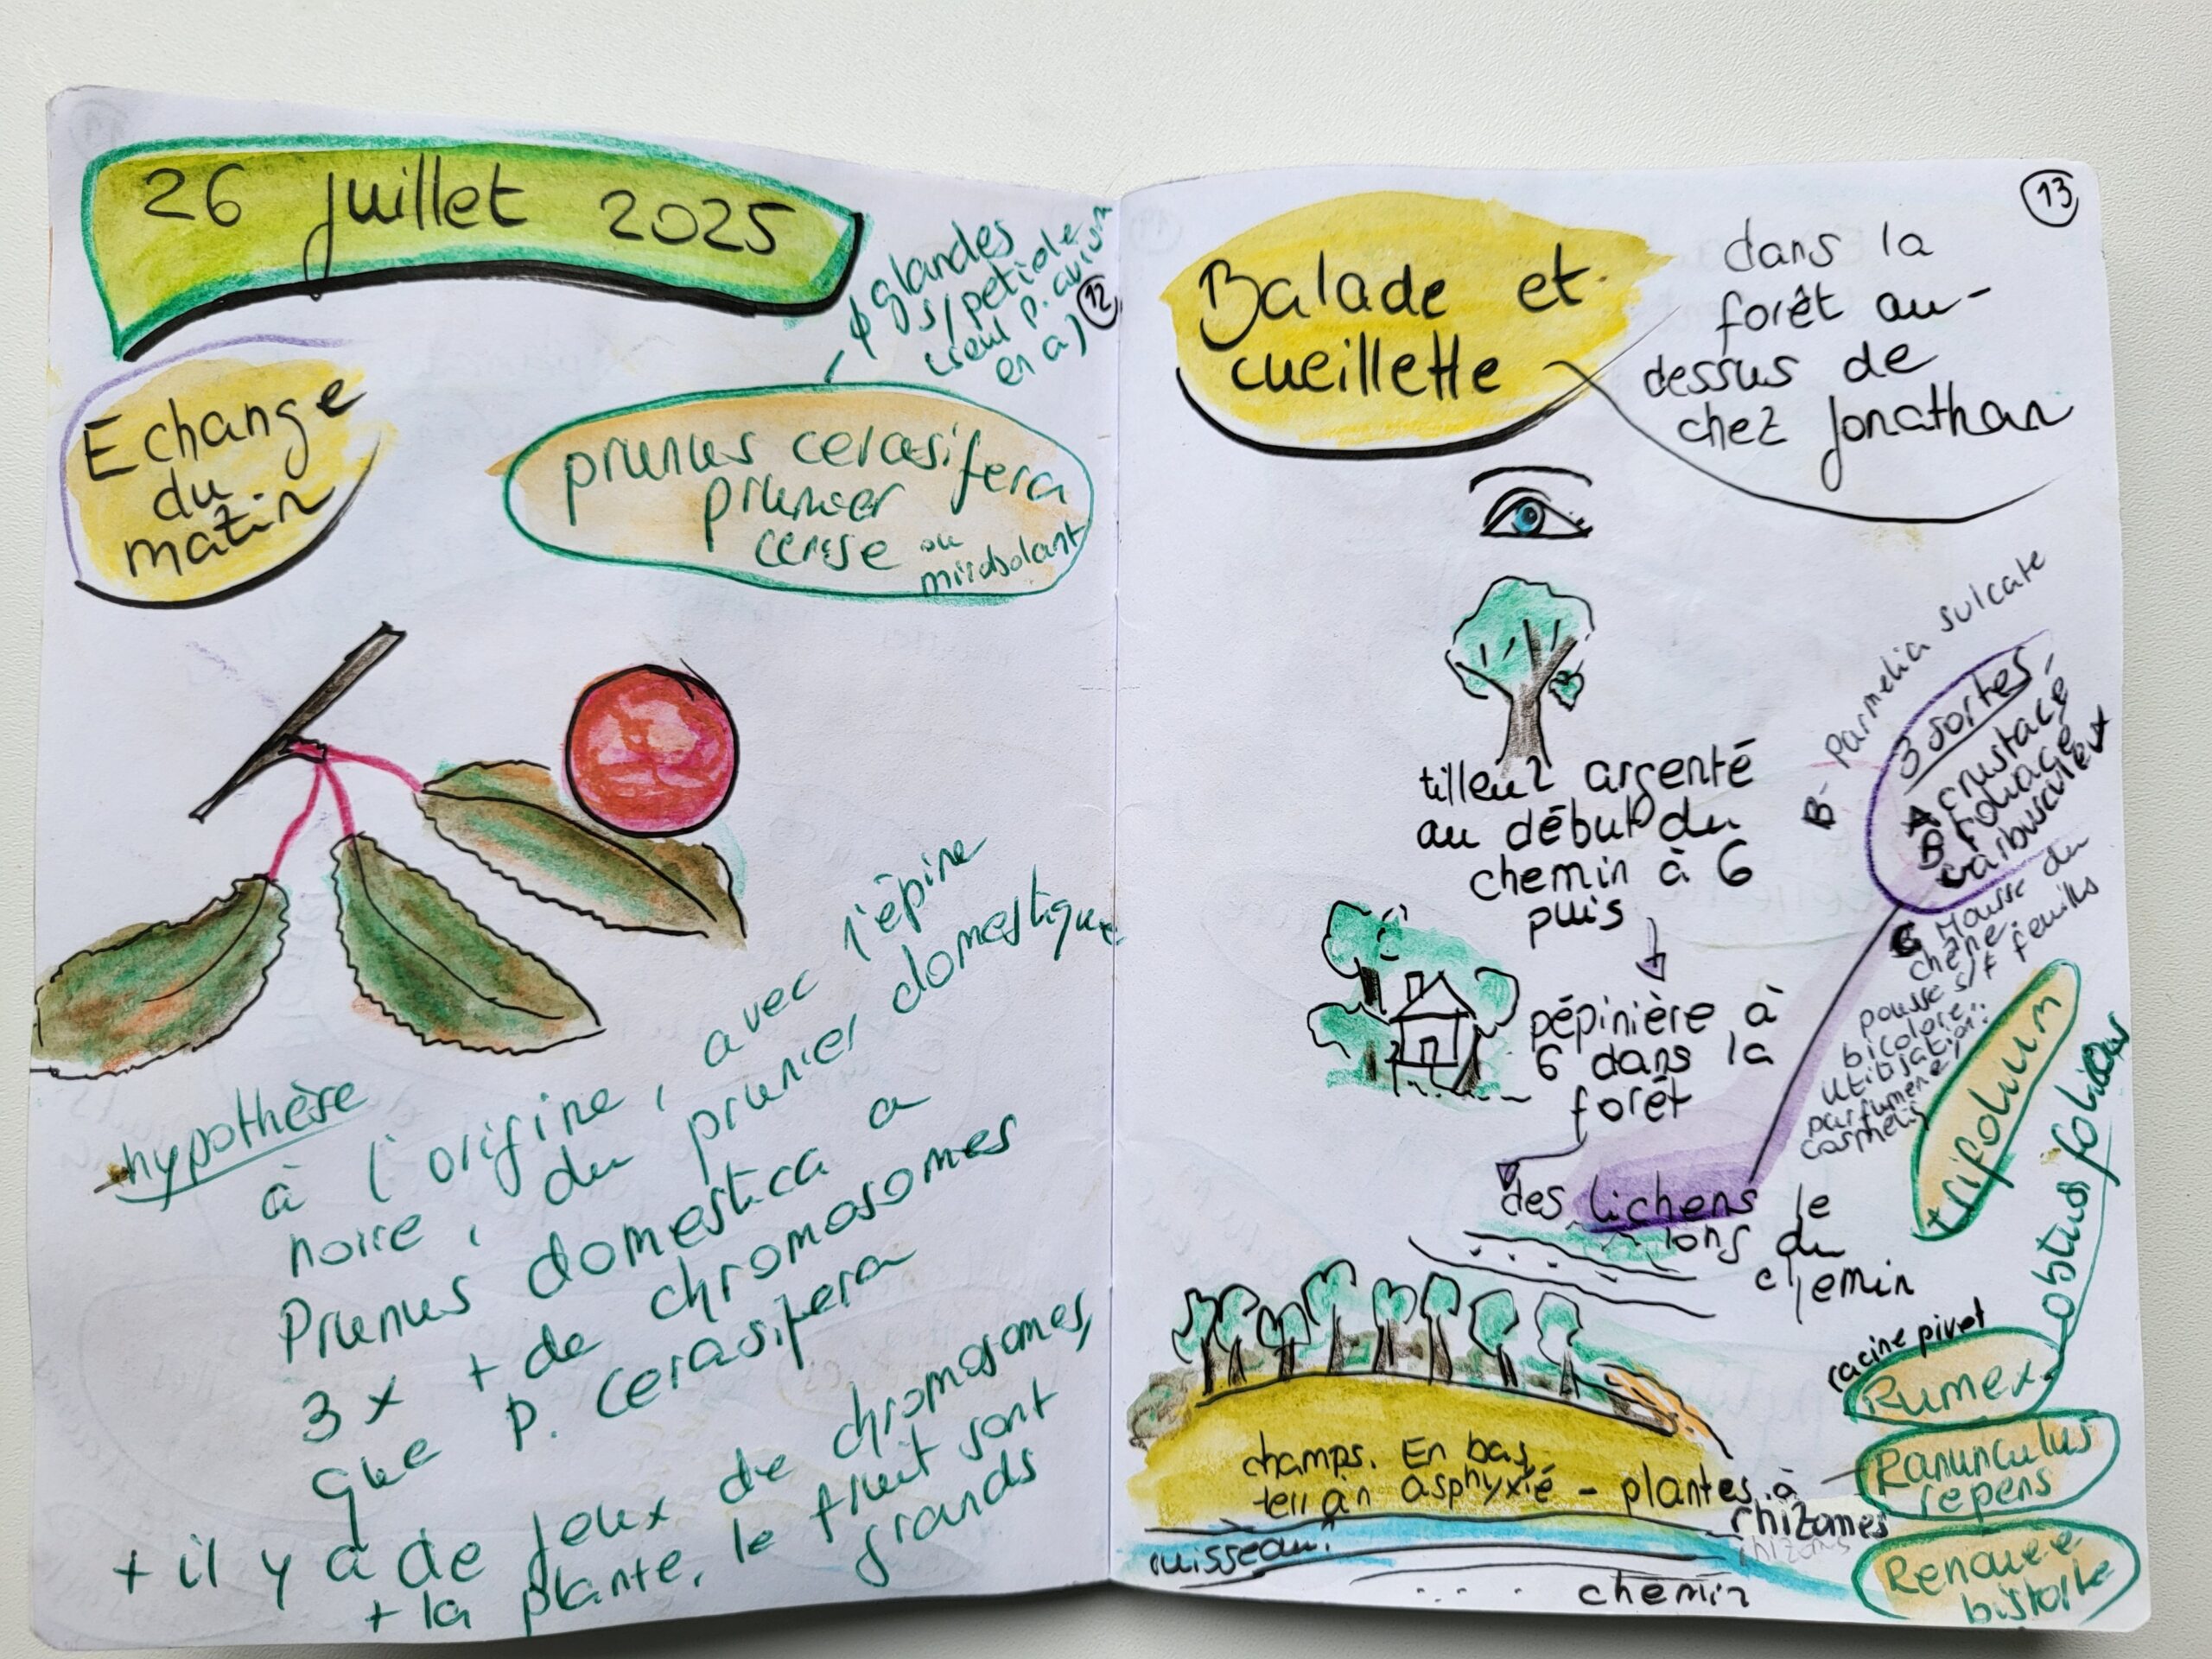 26 juillet 2025
glandes
s/petiole
(seul p. avium
en a)
12
Echange
du
matin
prunus cerasifera
prunier
cerise ou
mirobolant
hypothèse
à l'origine, avec l'épine
noire, du prunier domestique
Prunus domestica a
3 x + de chromosomes
que P. cerasifera
+ il y a de jeux de chromosomes,
+ la plante, le fruit sont
grands
13
Balade et
cueillette
dans la
forêt au-
dessus de
chez Jonathan
tilleul argenté
au début du
chemin à 6
puis
pépinière à
6 dans la
forêt
des lichens le
long du
chemin
B- Parmelia sulcate
3 sortes
A crustacé
B foliacé
C arbusculeux
C Mousse du
chêne.
pousse s/f feuillus
bicolore.
utilisation:
parfumerie,
cosmétis
trifolium
obtusifolius
racine pivot
Rumex
Ranunculus
repens
Renouée
bistorte
champs. En bas,
terrain asphyxié - plantes à
rhizomes
ruisseau.
chemin